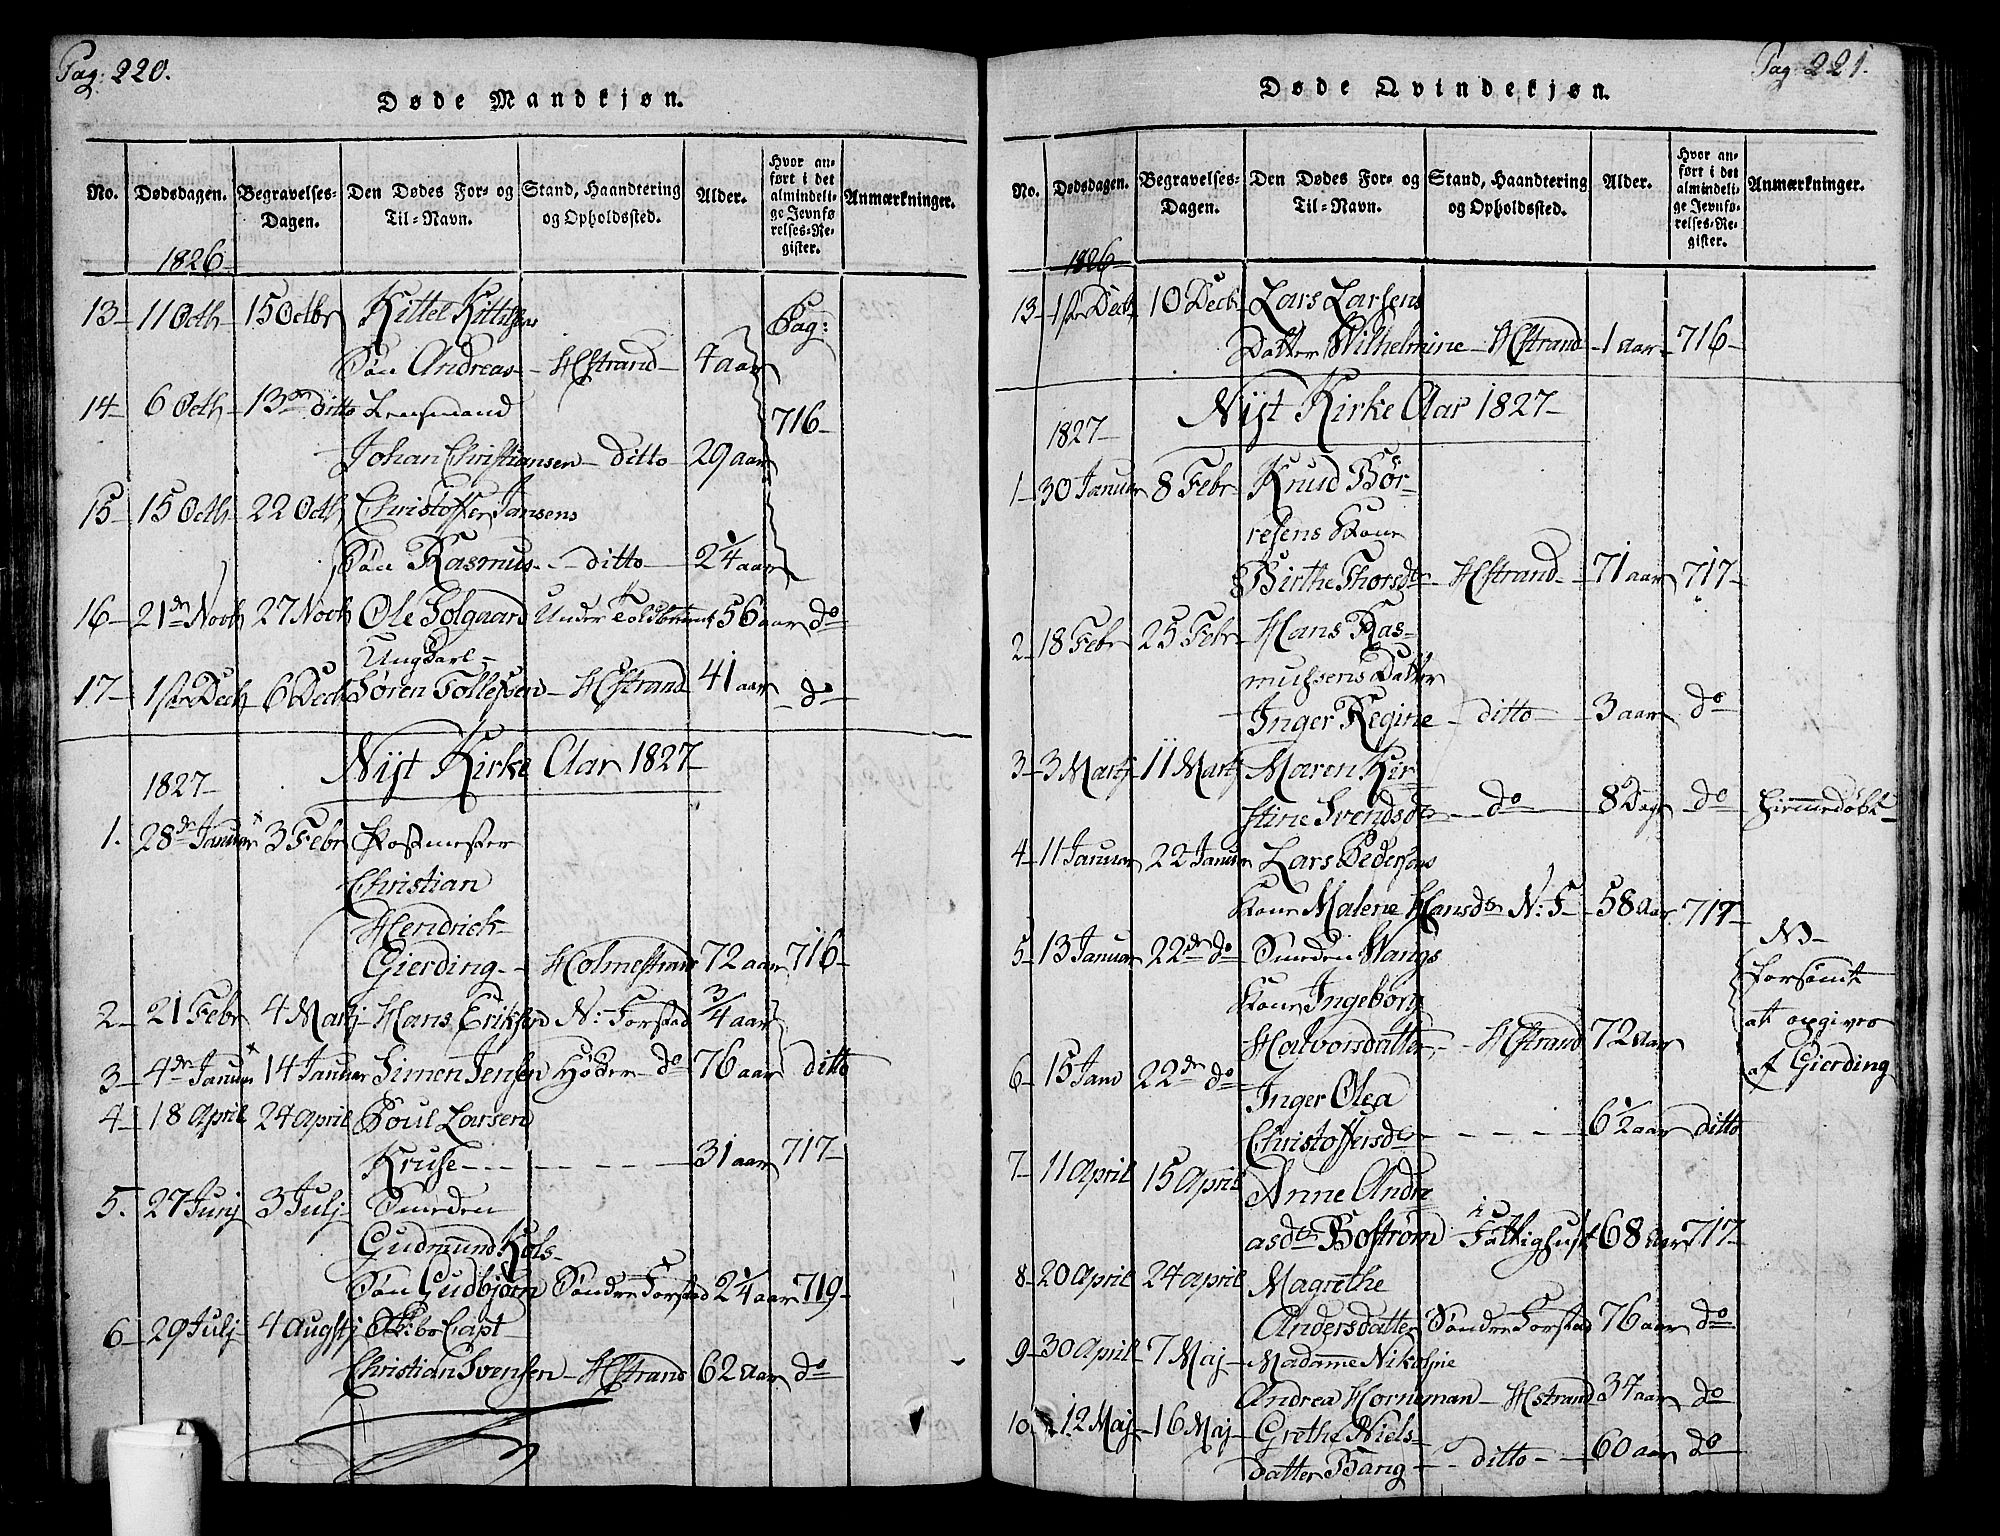 Pag: 220.
Døde Mandkjøn.
No. Dødsdagen. Begravelses-Dagen. Den Dødes For- og Til-Navn. Stand, Haandtering og Opholdssted. Alder. Hvor anført i det almindelige Jevnførelses-Register. Anmærkninger.
1826
13 11 Octb 15 Octbr Kittel Kittilsens Pag:
Søn Andreas - HStrand - 4 aar
14 6 Octb 13 ditto Lensmand 716
Johan Christiansen - ditto - 29 aar
15 15 Octb 22 Octb Christoffer Jansens
Søn Rasmus - ditto - 2 1/4 aar
16 21de Novb 27 Novb Ole Solgaard Under Toldbetient 56 aar do
Ungkarl
17 1ste Decb 6 Decb Søren Tollefsen - HStrand 41 aar do
Nyt Kirke Aar 1827
1827
1. 28de Januar 3 Febr Postmester
Christian
Hendrick
Gierding - Holmestrand 72 aar 716
2 21 Febr 4 Martj Hans Eriksen N: Forstad 3/4 aar
3 4de Januar 14 Januar Simen Jensen do 76 aar ditto
4 18 April 24 April Poul Larsen
Kruse - 31 aar 717
5. 27 Junj 3 Julj Smeden
Gudmund Kols-
Søn Gudbjørn Søndre Forstad 2 1/4 aar 719
6 29 Julj 4 Augstj Skibs Capt
Christian Svensen - HStrand 62 aar do
Pag 221.
Døde Qvindekjøn.
No. Dødsdagen. Begravelses-Dagen. Den Dødes For- og Til-Navn. Stand, Haandtering og Opholdssted. Alder. Hvor anført i det almindelige Jevnførelses-Register. Anmærkninger.
1826
13 1ste Decb 10 Decb Lars Larsens
Datter Wilhelmine - HStrand - 1 aar 716
Nyt Kirke Aar 1827
1827
1 30 Januar 8 Febr Knud Bør-
resens Kone
Birthe Thorsdr - HStrand - 71 aar 717
2 18 Febr 25 Febr Hans Ras-
mussens Datter
Inger Regine - ditto - 3 aar do
3 3 Martj 11 Martj Maren Kir
stine Svendsdr - do 8 Dage do Hiemmedøbt
4 11 Januar 22 Januar Lars Pedersens
Kone Malene Hansdr N: F 58 aar 717
5 13 Januar 22de do Smeden Wangs NB
Kone Ingeborg forsømt
Halvorsdatter - HStrand 72 aar at opgives
6 15 Janv 22de do Inger Olea af Gierding
Christoffersdr - 6 1/2 aar ditto
7 11 April 15 April Anne Andre
asdtr Bostrøm i Fattighuset 68 aar 717
8 20 April 24 April Magrethe
Andersdatter Søndre Forstad 76 aar do
9 30 April 7 Maj Madamme Nikoline
Andrea Horneman - HStrand 37 aar do
10 12 Maj 16 Maj Grethe Niels-
datter Bang - ditto - 60 aar do